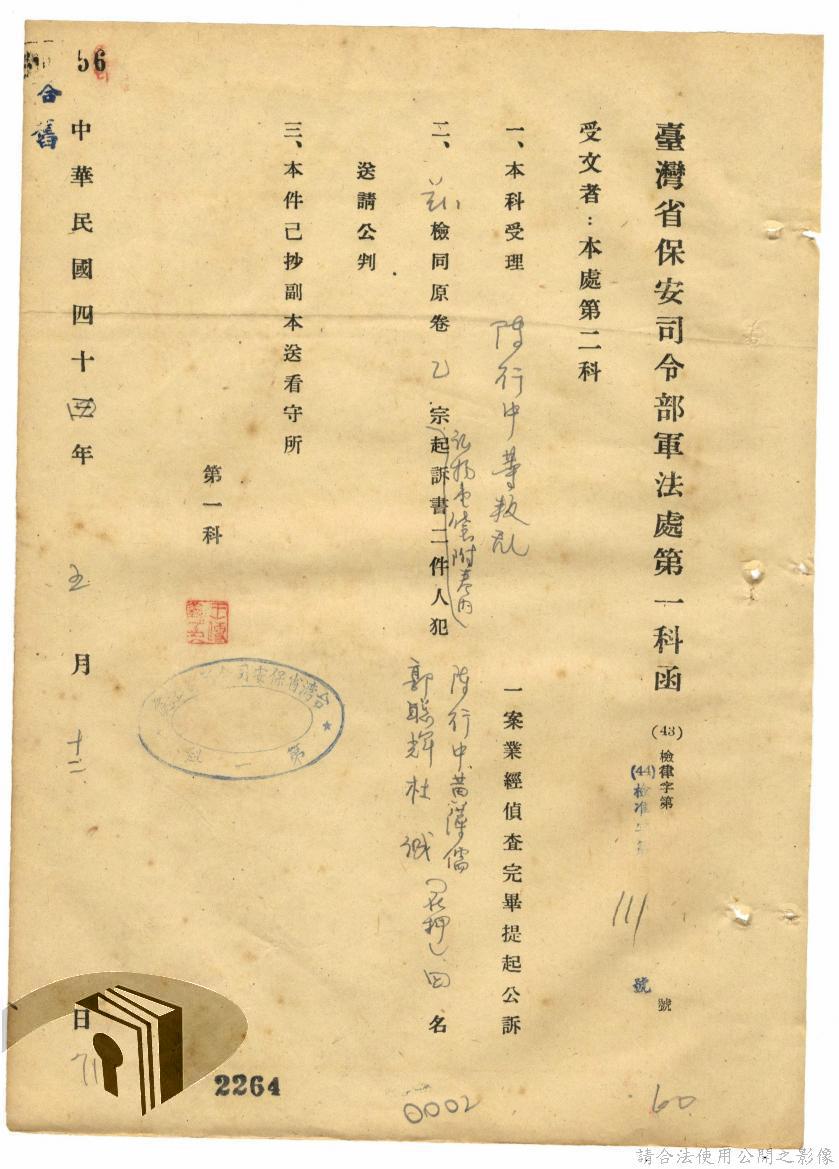 臺灣省保安司令部軍法處第一科函
(43)檢律字第 號
(44)檢准字第 111 號
受文者：本處第二科
一、本科受理 陳行中等叛乱 一案業經偵查完畢提起公訴
二、茲檢同原卷乙宗起訴書二件人犯 陳行中 黄 郭聰輝 杜 (在押)四名
附卷内
送請公判
三、本件已抄副本送看守所
第一科
中華民國四十四年 五 月 十二 日
56
合
舊
71
2264
0002
60
請合法使用公開之影像